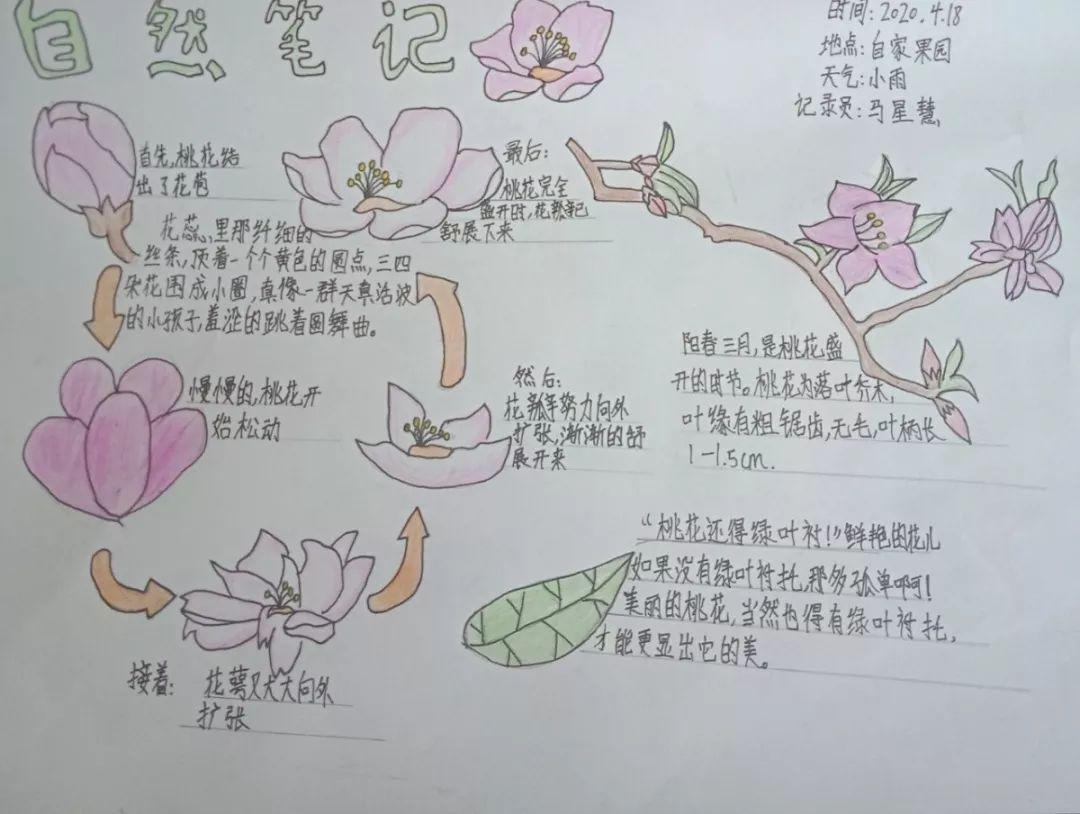 自然笔记
时间:2020.4.18
地点:自家果园
天气:小雨
记录员:马星慧
首先,桃花结
出了花苞
花蕊里那纤细的
丝条,顶着一个个黄色的圆点,三四
朵花围成小圈,真像一群天真活波
的小孩子,羞涩的跳着圆舞曲。
慢慢的,桃花开
始松动
接着:
花萼又大大向外
扩张
然后:
花瓣努力向外
扩张,渐渐的舒
展开来
最后:
桃花完全
盛开时,花瓣已
舒展下来
阳春三月,是桃花盛
开的时节。桃花为落叶乔木,
叶缘有粗锯齿,无毛,叶柄长
1-1.5cm.
“桃花还得绿叶衬!”鲜艳的花儿
如果没有绿叶衬托,那多孤单啊!
美丽的桃花,当然也得有绿叶衬托,
才能更显出它的美。